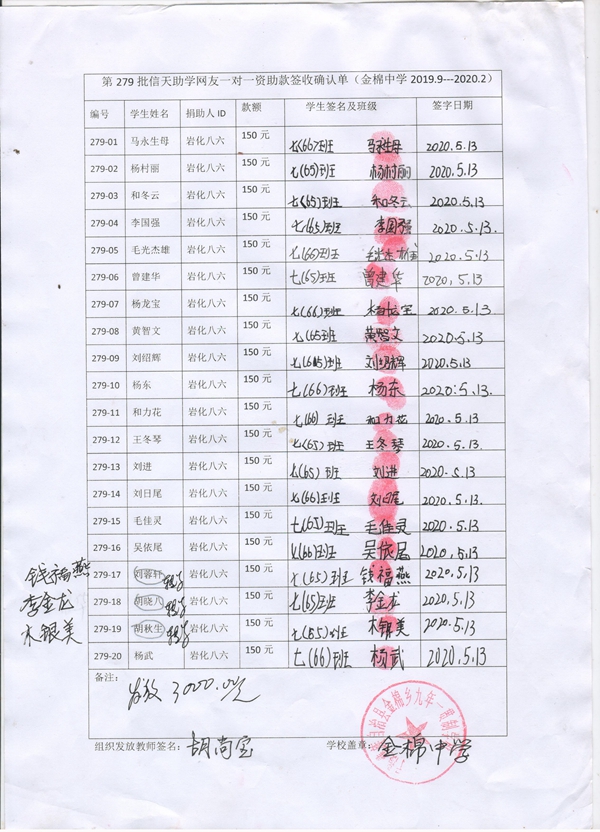 第 279 批信天助学网友一对一资助款签收确认单（金棉中学 2019.9---2020.2）
编号 学生姓名 捐助人 ID 款额 学生签名及班级 签字日期
279-01 马永生母 岩化八六 150 元 七(66)班 马永生母 2020.5.13
279-02 杨村丽 岩化八六 150 元 七(65)班 杨村丽 2020.5.13
279-03 和冬云 岩化八六 150 元 七(65)班 和冬云 2020.5.13
279-04 李国强 岩化八六 150 元 七(65)班 李国强 2020.5.13.
279-05 毛光杰雄 岩化八六 150 元 七(66)班 毛光杰雄 2020.5.13
279-06 曾建华 岩化八六 150 元 七(65)班 曾建华 2020.5.13
279-07 杨龙宝 岩化八六 150 元 七(66)班 杨龙宝 2020.5.13
279-08 黄智文 岩化八六 150 元 七(65班 黄智文 2020.5.13
279-09 刘绍辉 岩化八六 150 元 班 刘绍辉 2020.5.13
279-10 杨东 岩化八六 150 元 七(66)班 杨东 2020.5.13.
279-11 和力花 岩化八六 150 元 七(66)班 和力花 2020.5.13
279-12 王冬琴 岩化八六 150 元 七(65)班 王冬琴 2020.5.13
279-13 刘进 岩化八六 150 元 七(65)班 刘进 2020.5.13
279-14 刘日尾 岩化八六 150 元 七(66)班 刘日尾 2020.5.13.
279-15 毛佳灵 岩化八六 150 元 七(65)班 毛佳灵 2020.5.13
279-16 吴依尾 岩化八六 150 元 七(66)班 吴依尾 2020.5.13
钱福燕 279-17 刘蓉轩 岩化八六 150 元 七(65)班 钱福燕 2020.5.13
李金龙 279-18 胡晓八 岩化八六 150 元 七(65)班 李金龙 2020.5.13
木银美 279-19 胡秋生 岩化八六 150 元 班 木银美 2020.5.13
279-20 杨武 岩化八六 150 元 七(66)班 杨武 2020.5.13
备注： 发放3000.00元
组织发放教师签名： 胡尚宝 学校盖章： 金棉中学
自治县金棉乡九年一贯制学